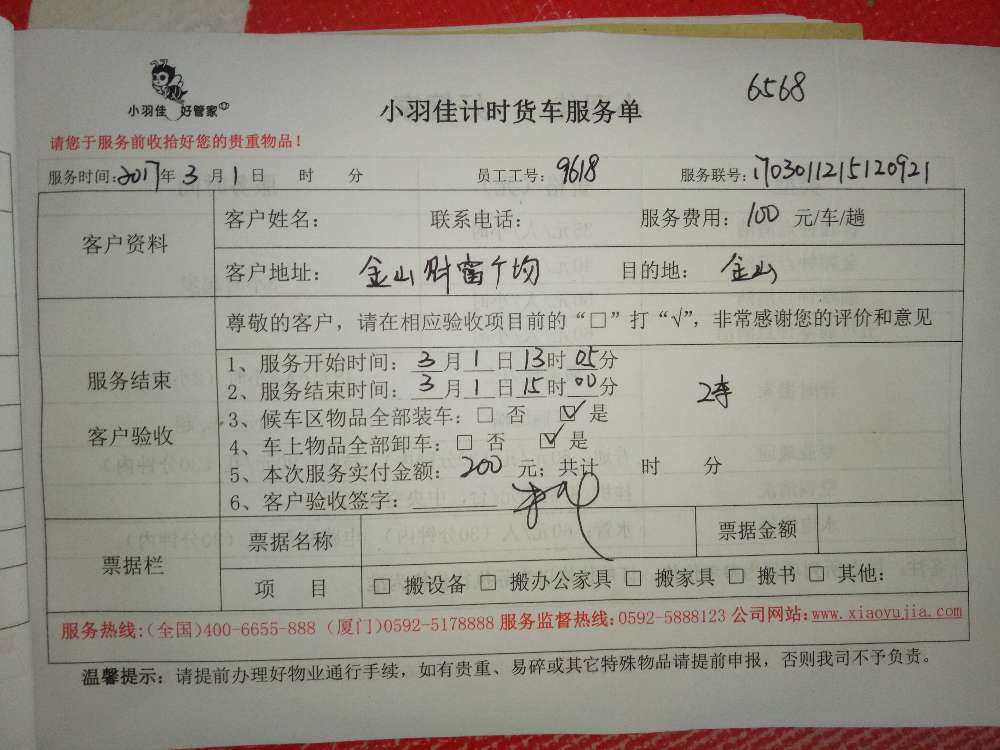 小羽佳 好管家
小羽佳计时货车服务单
6568
请您于服务前收拾好您的贵重物品！
服务时间：2017年 3 月 1 日 时 分 员工工号：9618 服务联号：1703011215120921
客户资料
客户姓名： 联系电话： 服务费用：100 元/车/趟
客户地址：金山财富广场 目的地：金山
服务结束
客户验收
尊敬的客户，请在相应验收项目前的“□”打“√”，非常感谢您的评价和意见
1、服务开始时间：3月1日13时05分
2、服务结束时间：3月1日15时00分
2车
3、候车区物品全部装车：□ 否 ☑ 是
4、车上物品全部卸车：□ 否 ☑ 是
5、本次服务实付金额：200 元；共计 时 分
6、客户验收签字：
票据栏
票据名称 票据金额
项 目 □ 搬设备 □ 搬办公家具 □ 搬家具 □ 搬书 □ 其他：
服务热线：(全国)400-6655-888 (厦门)0592-5178888 服务监督热线：0592-5888123 公司网站：www.xiaoyujia.com
温馨提示：请提前办理好物业通行手续，如有贵重、易碎或其它特殊物品请提前申报，否则我司不予负责。